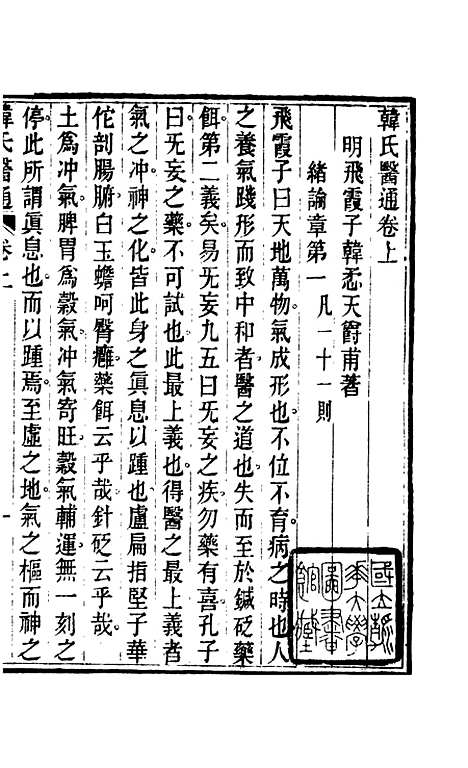 韓氏醫通卷上
明飛霞子韓悉天爵甫著
緒論章第一凡一十一則
飛霞子曰天地萬物氣成形也不位不育病之時也人
之養氣踐形而致中和者醫之道也失而至於鍼砭藥
餌第二義矣易旡妄九五曰旡妄之疾勿藥有喜孔子
曰旡妄之藥不可試也此最上義也得醫之最上義者
氣之冲神之化皆此身之眞息以踵也盧扁指堅子華
佗剖腸腑白玉蟾呵臀癰藥餌云乎哉針砭云乎哉
土爲冲氣脾胃爲穀氣冲氣寄旺穀氣輔運無一刻之
停此所謂眞息也而以踵焉至虛之地氣之樞而神之
韓氏醫通 卷上 一
國立清華大學圖書館藏